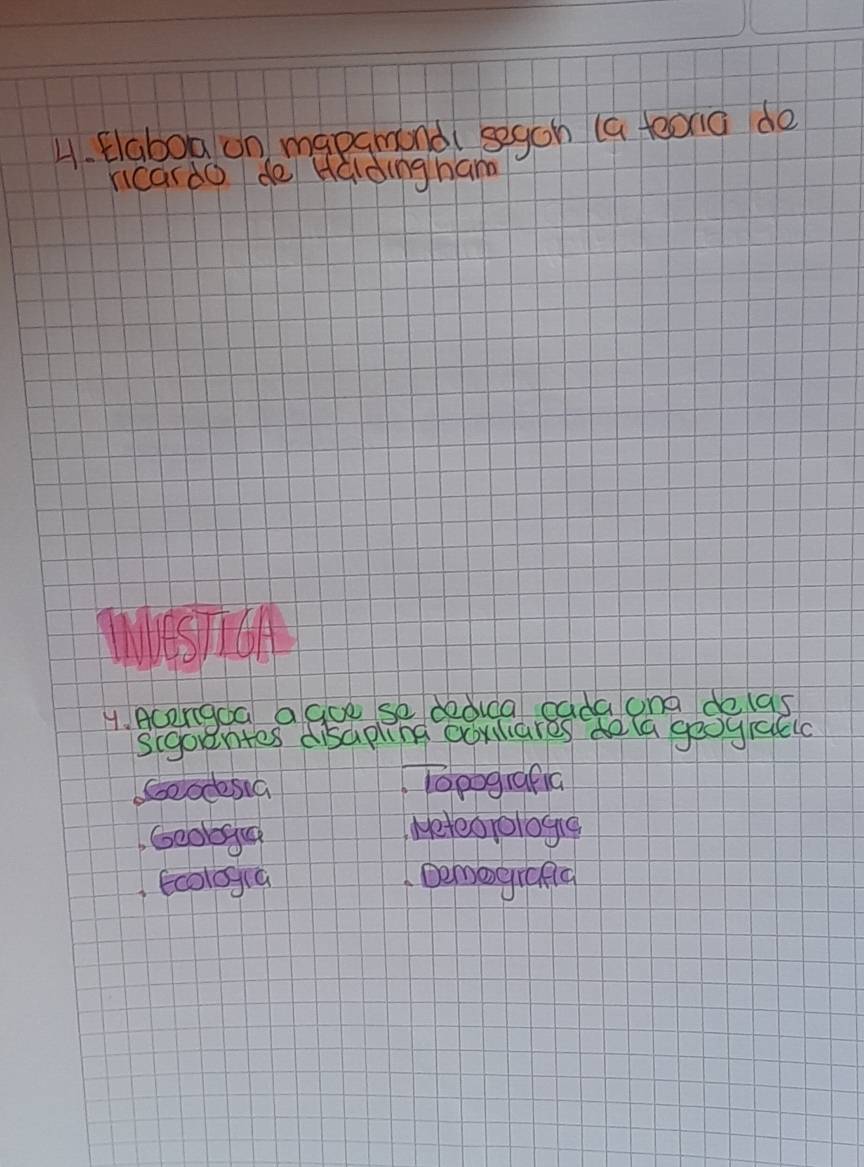 4. Elaboa on mapamondi segon la teoria de
ricardo de Haldingham
INVESTIGA
4. Acerigoa a goe se dedica cada ona de las
sigoientes disciplina aoxiliares de la geografic
. Geodesia
. Topografia
. Geologia
. Meteorologia
. Ecologia
. Demografia